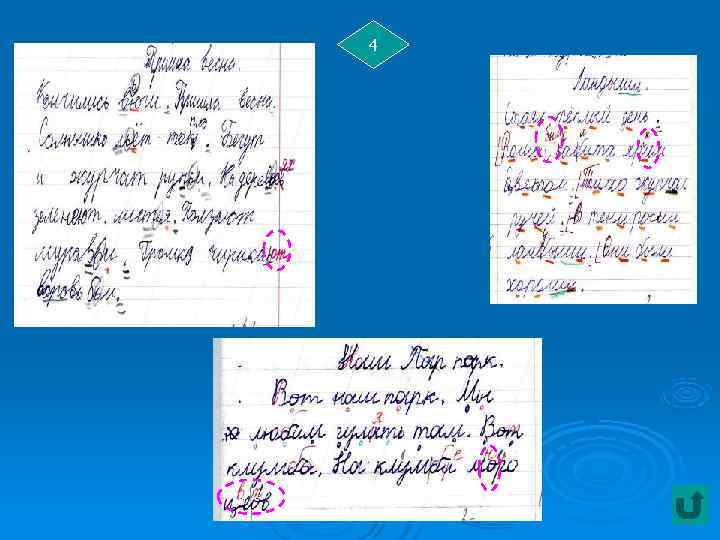 4
Пришла весна.
Кончились вюги. Пришла весна.
Солнышко свет теп. Бегут
и журчат ручьи. На дерев
зеленеют листья. Ползают
муравви. Громко чирикают
воробь
Ландыши.
Стоял тёплый день.
Роши
цветом. Тихо журчал
ручей. В тени росли
ландыши. Они были
хороши.
Наш Пар парк.
Вот наш парк. Мы
любим гулять там. Вот
клумба. На клумбе